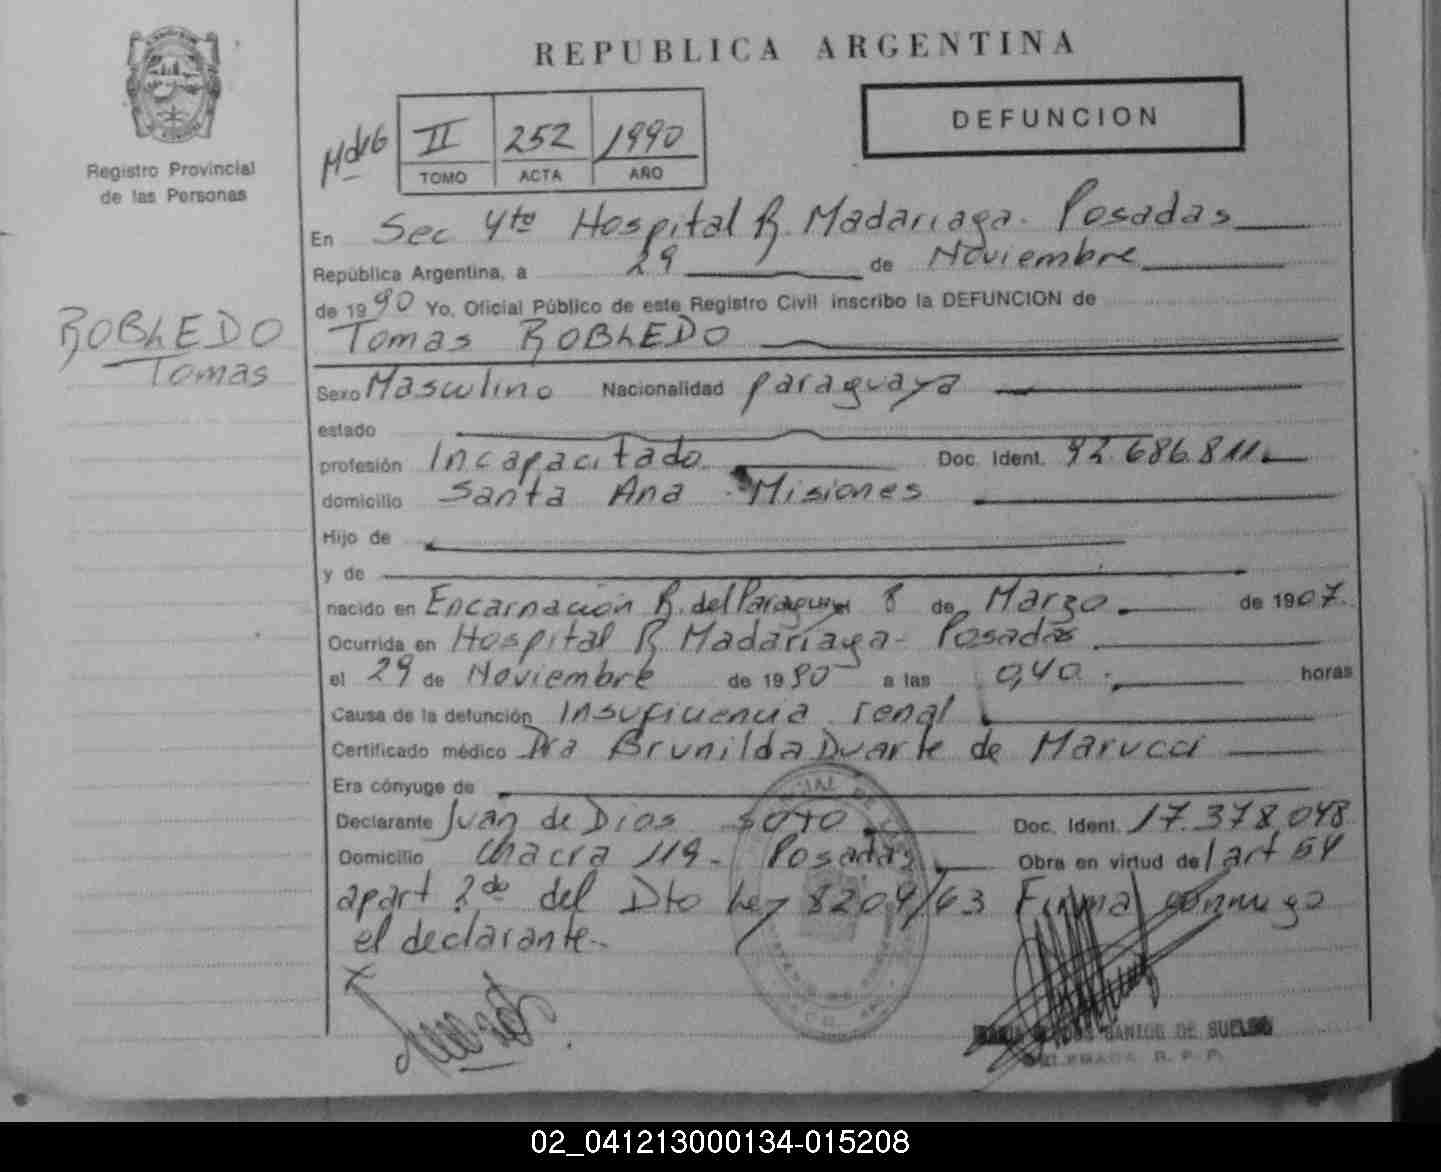 REPUBLICA ARGENTINA
DEFUNCION
Registro Provincial
de las Personas
II 252 1990
TOMO ACTA AÑO
En Sec 4ta Hospital R. Madariaga. Posadas
República Argentina, a 29 de Noviembre
de 1990 Yo, Oficial Público de este Registro Civil inscribo la DEFUNCION de
ROBLEDO
Tomas
Tomas ROBLEDO
Sexo Masculino Nacionalidad paraguaya
estado
profesión Incapacitado Doc. Ident. 92.686.811.
domicilio Santa Ana - Misiones
Hijo de
y de
nacido en Encarnación R. del Paraguay el 8 de Marzo de 1907.
Ocurrida en Hospital R. Madariaga - Posadas
el 29 de Noviembre de 1990 a las 0,40 horas
Causa de la defunción Insuficiencia renal
Certificado médico Dra Brunilda Duarte de Marucci
Era cónyuge de
Declarante Juan de Dios Soto Doc. Ident. 17.378.048
Domicilio Chacra 119 - Posadas Obra en virtud del art 54
apart 2do del Dto Ley 8204/63 Firma conmigo
el declarante.
SANTOS DE
DELEGADA R. P. P.
02_041213000134-015208